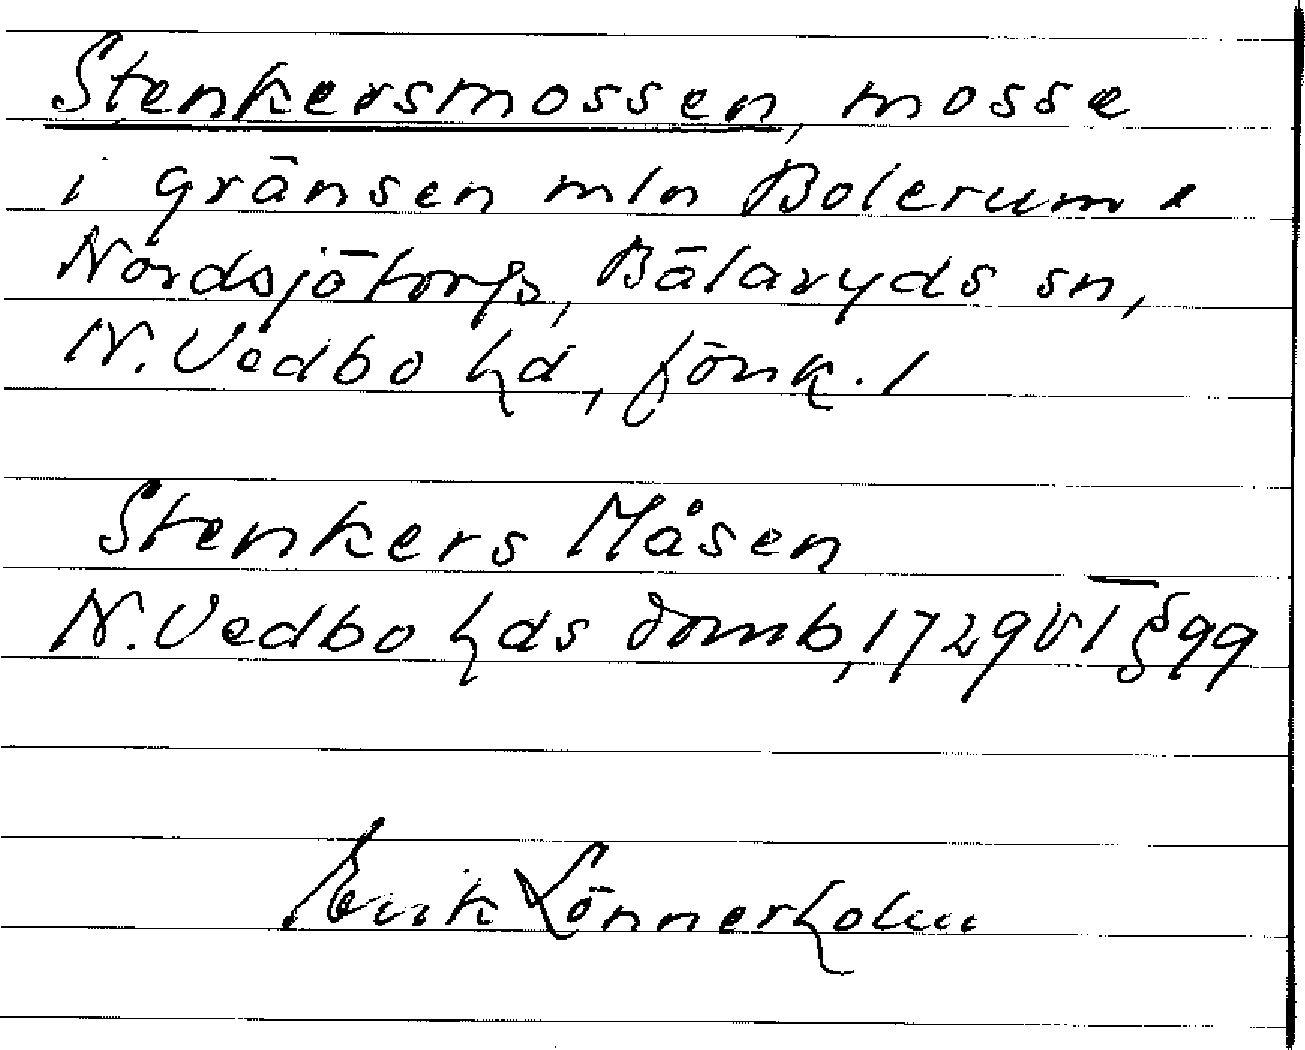 Stenkersmossen, mosse
i gränsen mln Bolerum o
Nordsjötorp, Bälaryds sn,
N. Vedbo hd, Jönk. l
Stenkers Måsen
N. Vedbo hds domb, 1729 VI § 99
Erik Lönnerholm